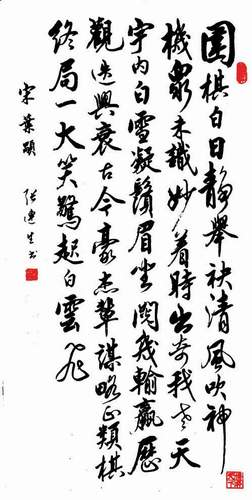 圍棋白日静舉袂清風吹神
機衆未識妙着時出奇我老天
宇内白雪凝鬚眉坐閲幾輸贏歷
觀迭興衰古今豪杰輩謀略正類棋
終局一大笑驚起白雲飛
宋葉顒
張連生书